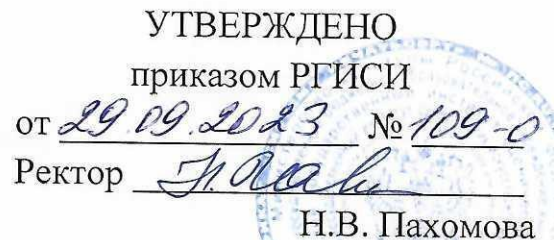 УТВЕРЖДЕНО
приказом РГИСИ
от 29.09.2023 № 109-О
Ректор
Н.В. Пахомова